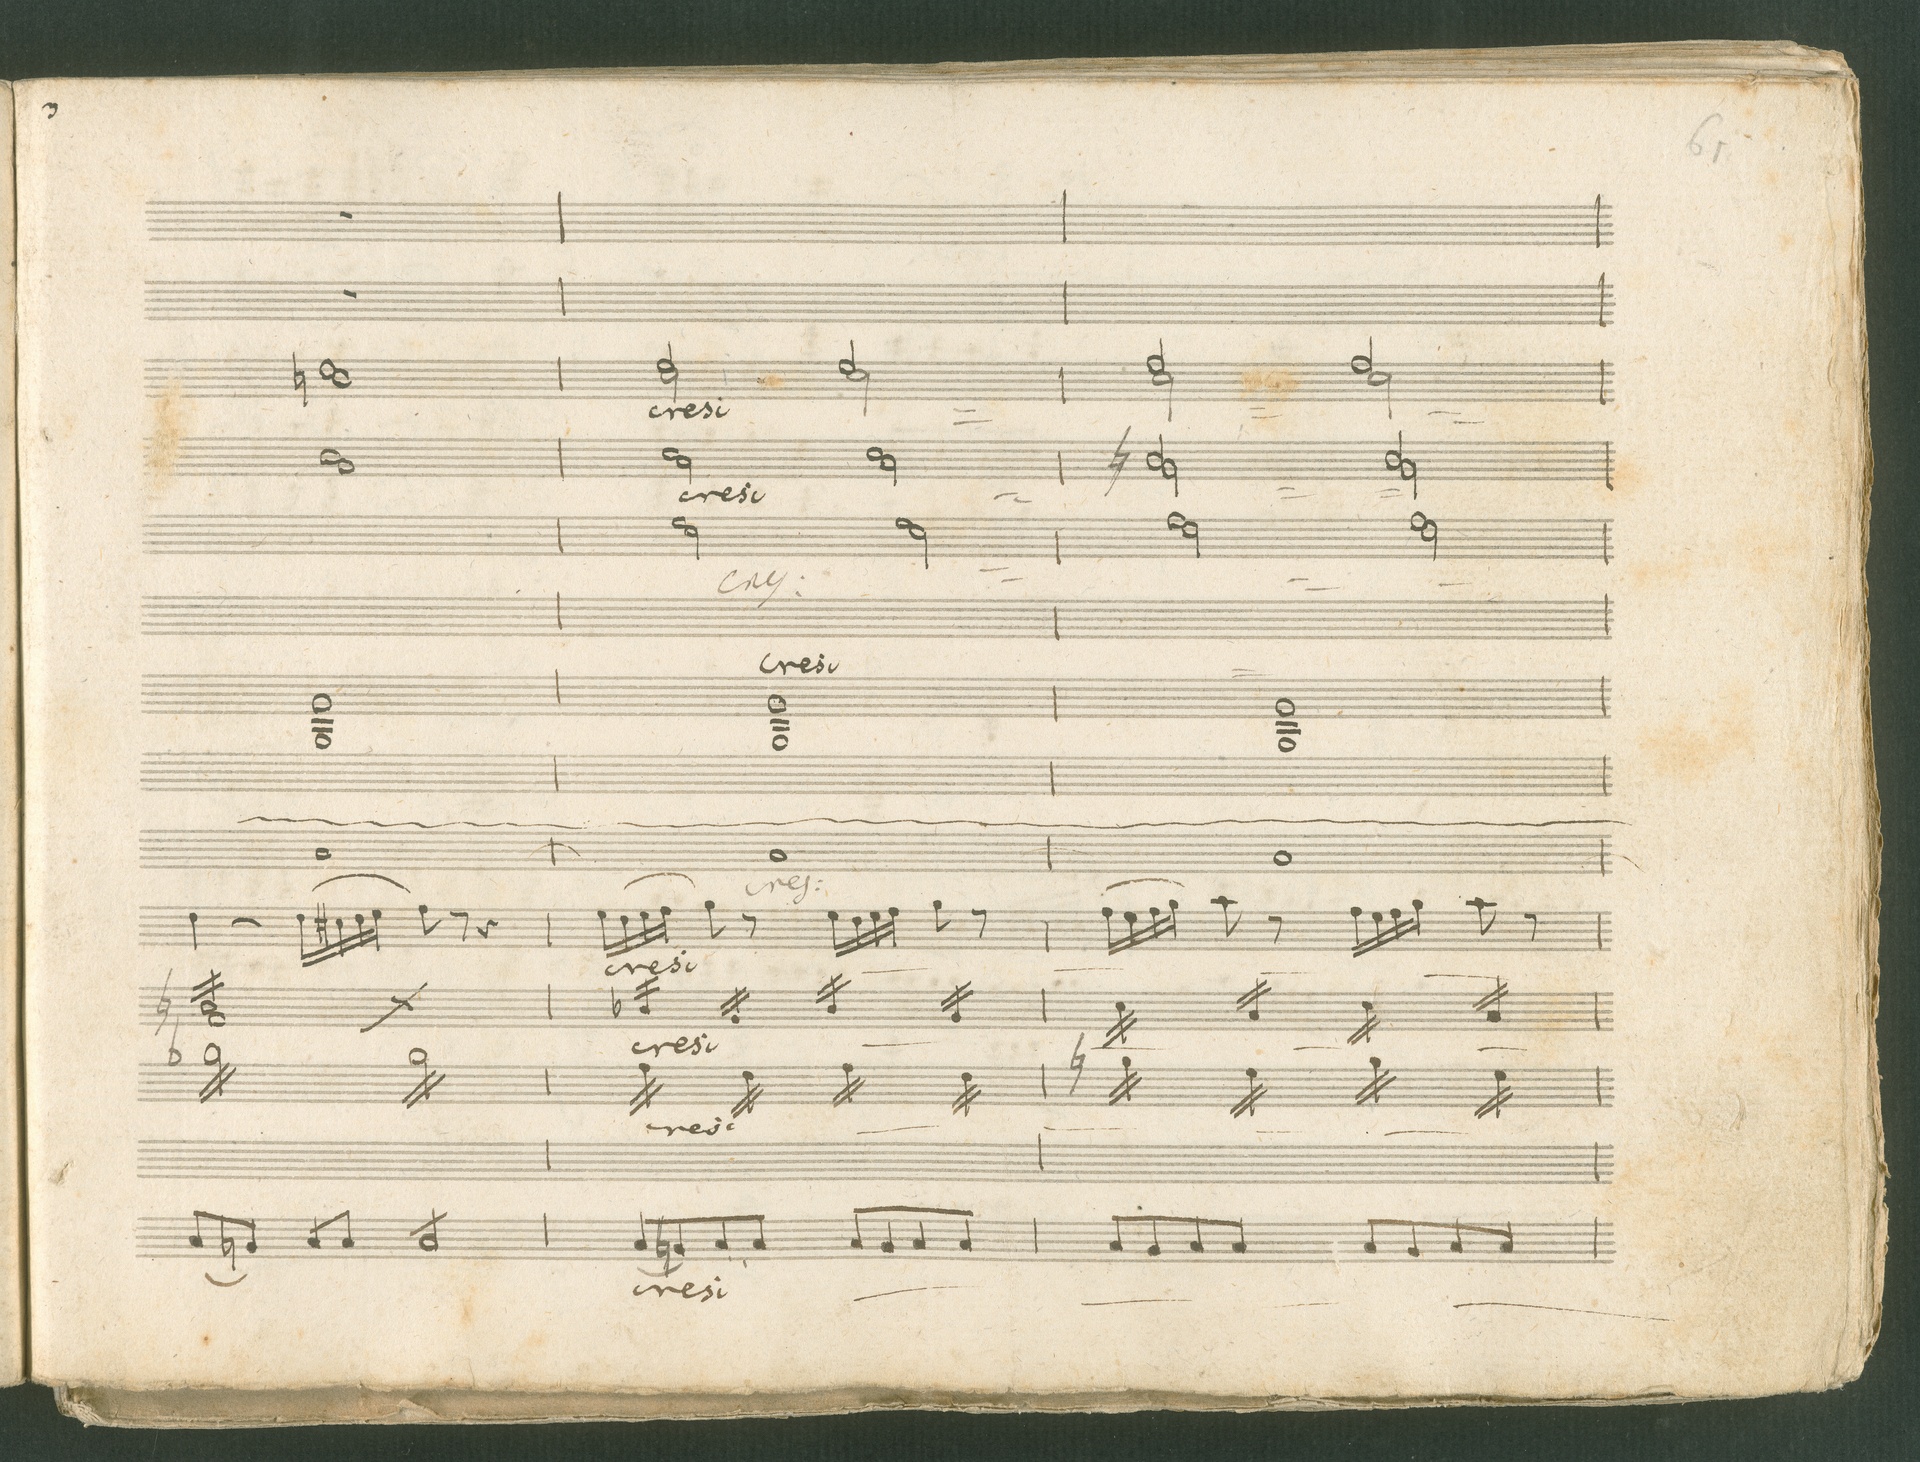 6r
cresc
cresc
cres:
cresc
cres:
cresc
cresc
cresc
cresc